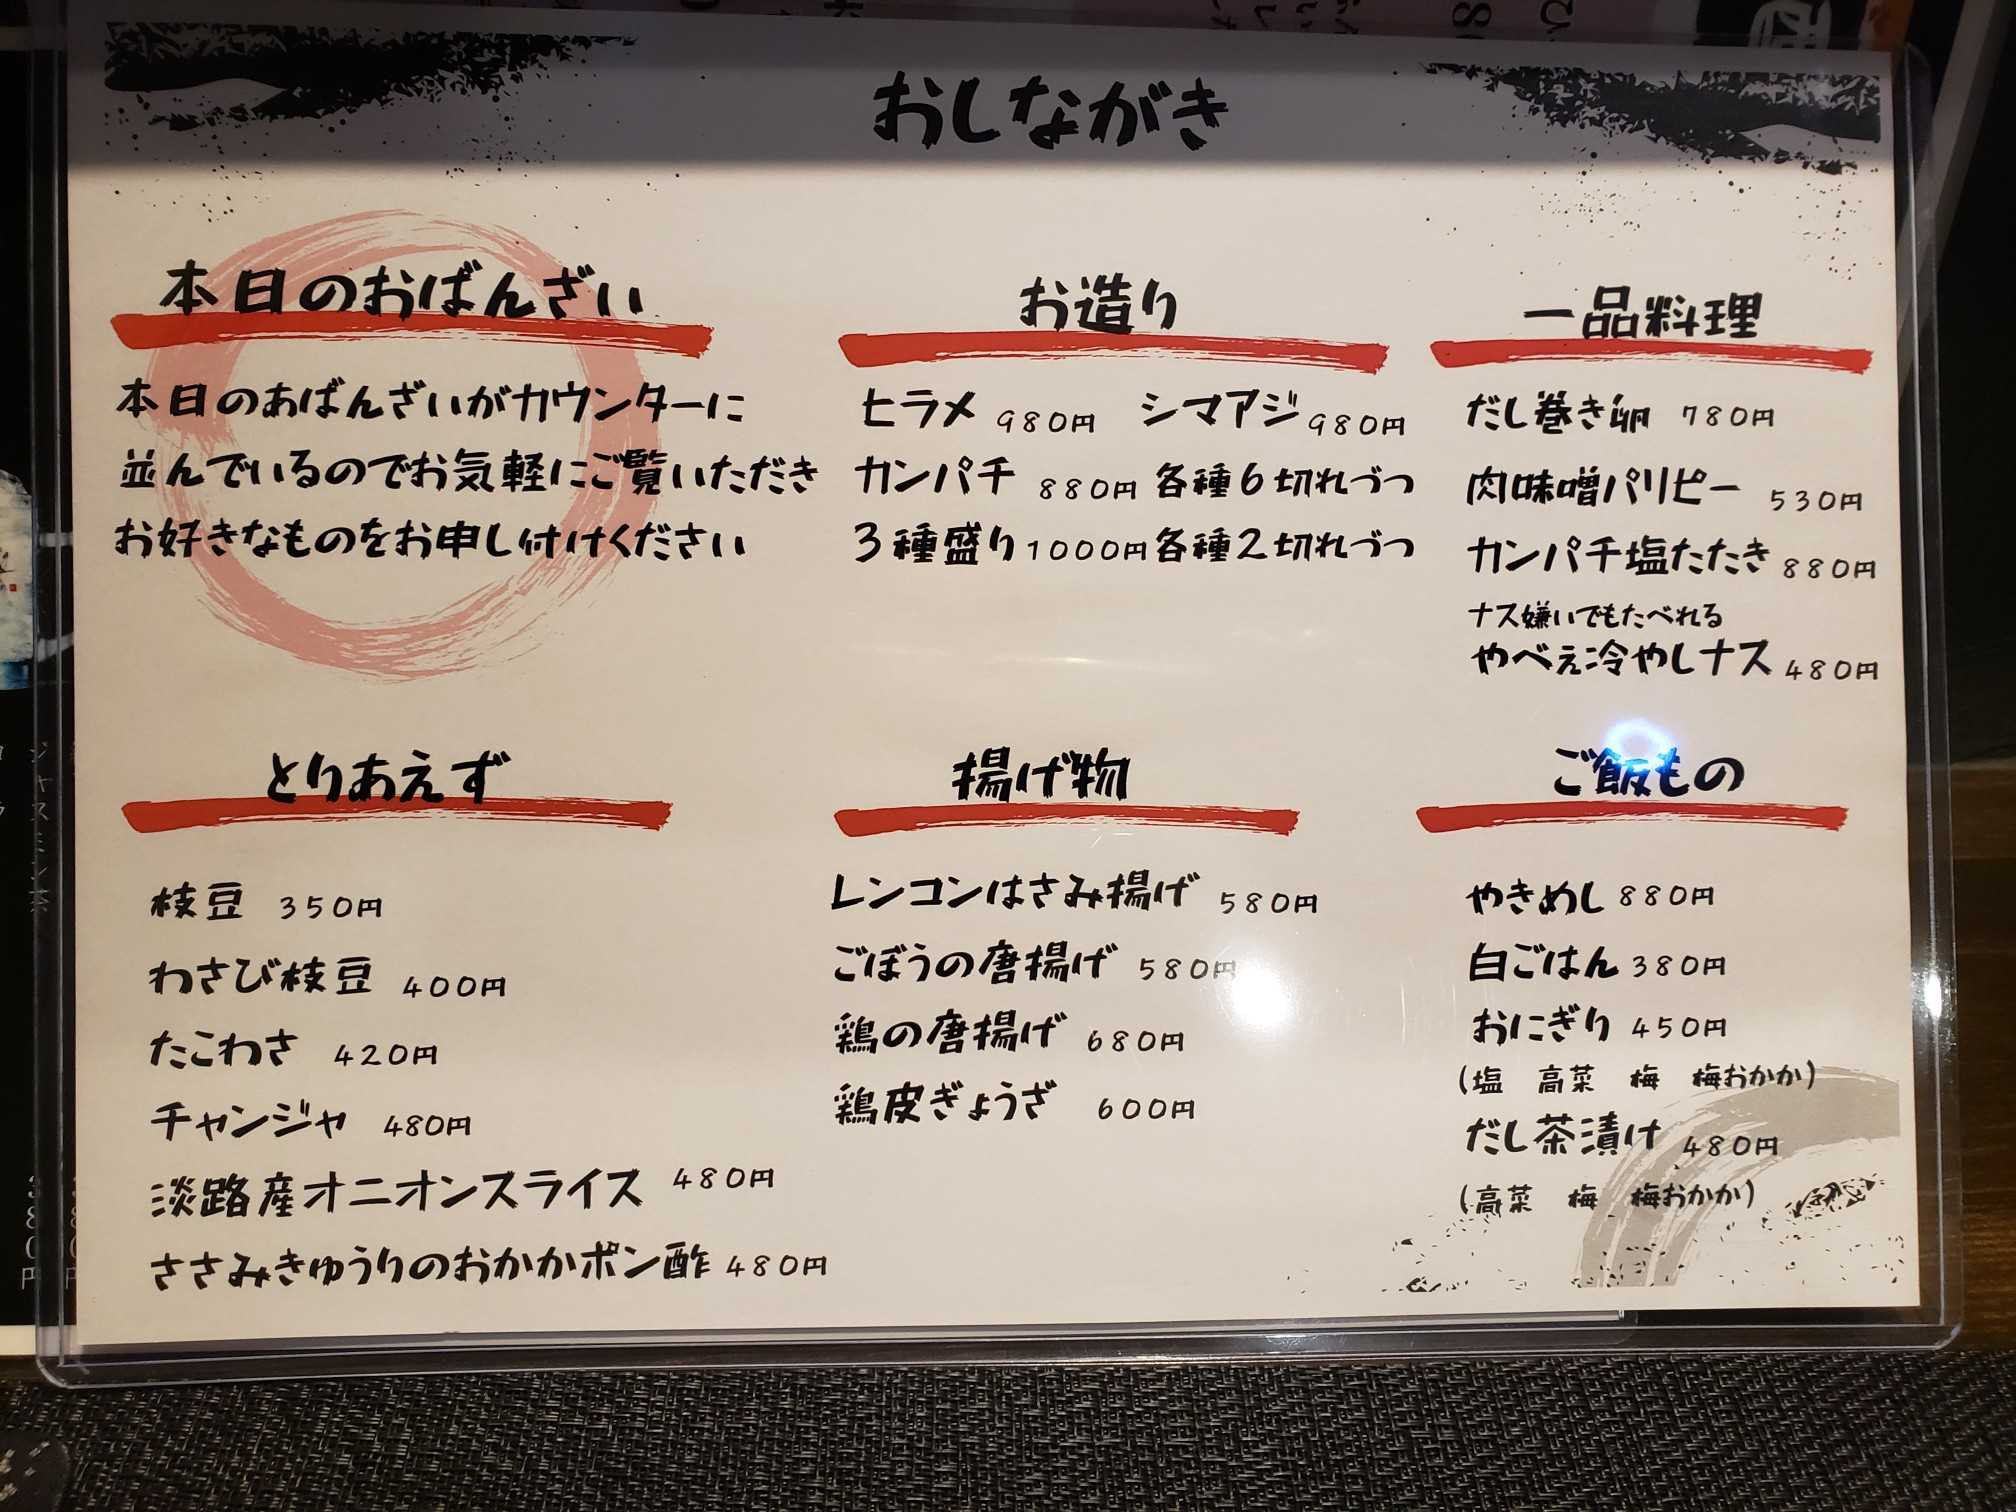 おしながき
本日のおばんざい
本日のおばんざいがカウンターに
並んでいるのでお気軽にご覧いただき
お好きなものをお申し付けください
お造り
ヒラメ 980円 シマアジ 980円
カンパチ 880円 各種6切れづつ
3種盛り 1000円 各種2切れづつ
一品料理
だし巻き卵 780円
肉味噌パリピー 530円
カンパチ塩たたき 880円
ナス嫌いでもたべれる
やべぇ冷やしナス 480円
とりあえず
枝豆 350円
わさび枝豆 400円
たこわさ 420円
チャンジャ 480円
淡路産オニオンスライス 480円
ささみきゅうりのおかかポン酢 480円
揚げ物
レンコンはさみ揚げ 580円
ごぼうの唐揚げ 580円
鶏の唐揚げ 680円
鶏皮ぎょうざ 600円
ご飯もの
やきめし 880円
白ごはん 380円
おにぎり 450円
(塩 高菜 梅 梅おかか)
だし茶漬け 480円
(高菜 梅 梅おかか)